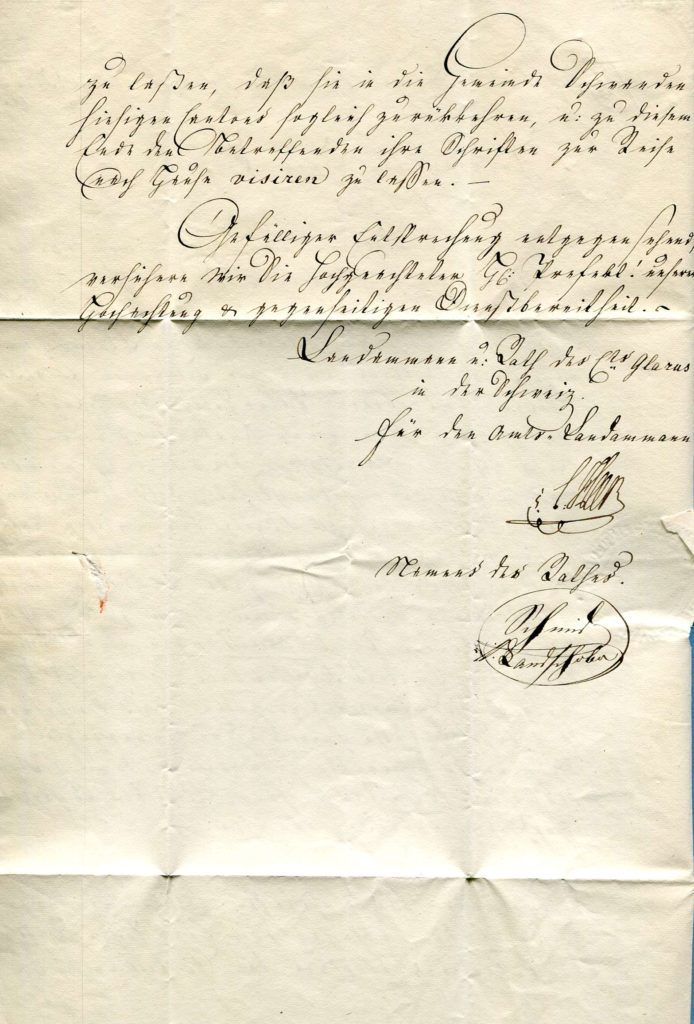 zu laßen, daß sie in die Gemeinde Schwanden
hiesigen Cantons sogleich zurükkehren, u: zu diesem
Ende den Betreffenden ihre Schriften zur Reise
nach Hause visiren zu lassen. –
Gefälliger Entsprechung entgegen sehend,
versichern wir Sie Hochgeachteter Hh: Prefekt! unserer
Hochachtung & gegenseitigen Dienstbereitheit. –
Landammann u: Rath des Cts Glarus
in der Schweiz.
Für den Amts-Landammann
Namens des Rathes.
Schmid